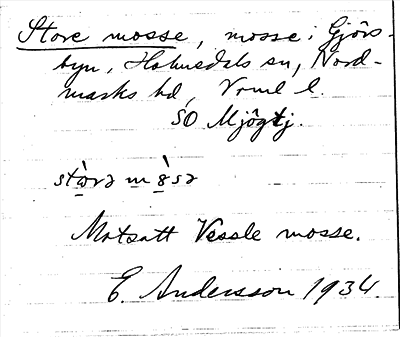 Store mosse, mosse i Gjörs-
byn, Holmedals sn, Nord-
marks hd, Vrml l.
SO Mjögtj.
stωrə m sə 
Motsatt Vessle mosse.
E. Andersson 1934.